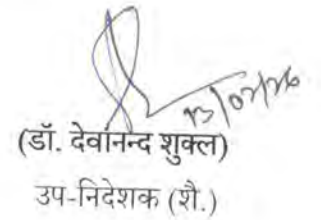 13/02/26
(डॉ. देवानन्द शुक्ल)
उप-निदेशक (शै.)